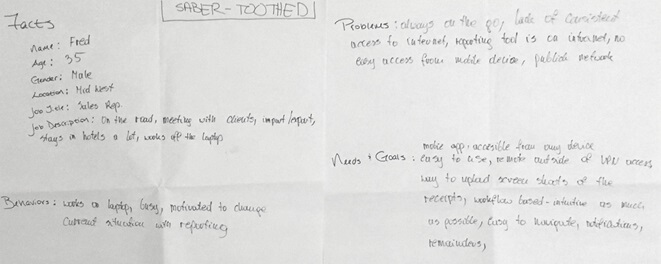 SABER-TOOTHED
Facts
Name: Fred
Age: 35
Gender: Male
Location: Mid West
Job Title: Sales Rep.
Job Description: On the road, meeting with clients, import/export,
stays in hotels a lot, works off the laptop
Behaviors: works on laptop, busy, motivated to change
current situation with reporting
Problems: always on the go, lack of consistent
access to internet, reporting tool is on internet, no
easy access from mobile device, public network
mobile app. accesible from any device
Needs + Goals: easy to use, remote outside of VPN access
way to upload screen shots of the
receipts, workflow based - intuitive as much
as possible, easy to navigate, notifications,
remainders,